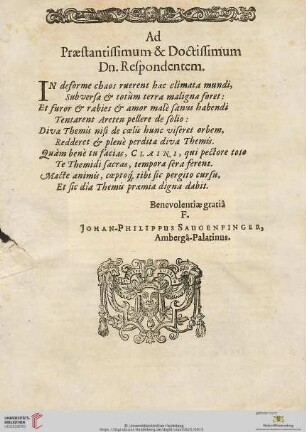 Ad
Præstantissimum & Doctissimum
Dn. Respondentem.
IN deforme chaos ruerent hæc climata mundi,
Subversâ & totùm terra maligna foret:
Et furor & rabies & amor malè sanus habendi
Tentarent Areten pellere de solio:
Diva Themis nisi de cœlis hunc viseret orbem,
Redderet & plenè perdita diva Themis.
Quàm benè tu facias, CLAINI, qui pectore toto
Te Themidi sacras, tempora sera ferent.
Macte animis, cœptoq́; tibi sic pergito cursu,
Et sic dia Themis præmia digna dabit.
Benevolentiæ gratiâ
F.
JOHAN-PHILIPPUS SAUGENFINGER,
Ambergâ-Palatinus.
UNIVERSITÄTS-
BIBLIOTHEK
HEIDELBERG
© Universitätsbibliothek Heidelberg